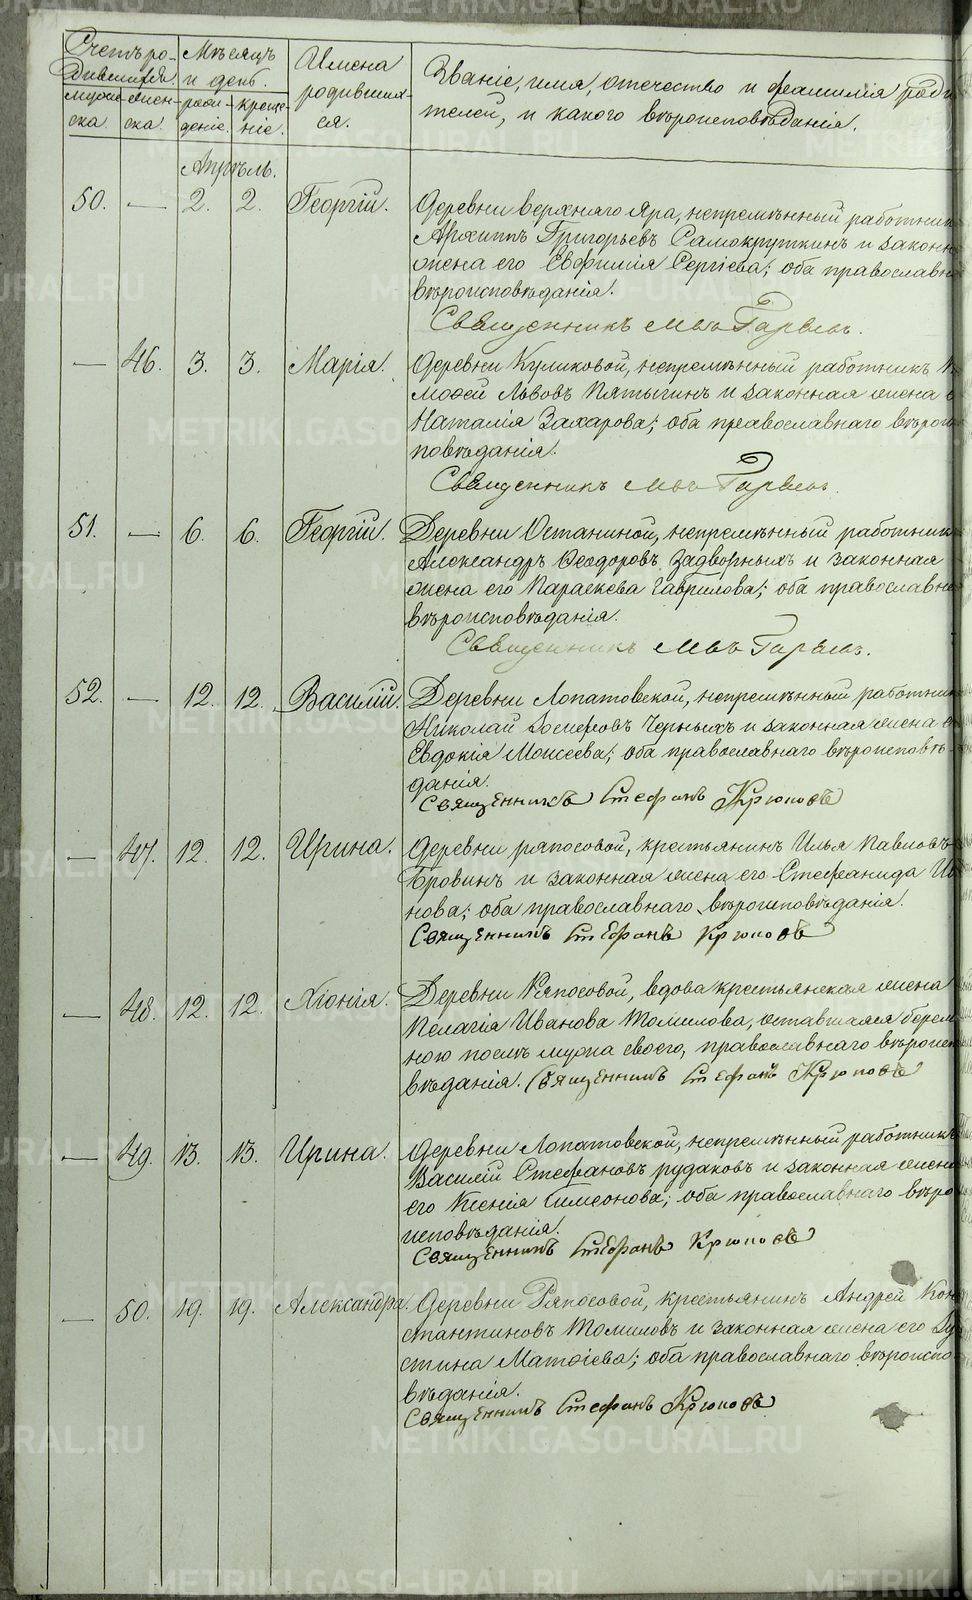 Счетъ ро-
дившихся
Мѣсяцъ
и день.
Имена
родивших-
ся.
Званіе, имя, отчество и фамилія роди
телей, и какого вѣроисповѣданія.
муже-
ска.
жен-
ска.
рож-
деніе.
креще-
ніе.
Апрѣль.
50. — 2. 2. Георгій. Деревни Верхняго Яра, непремѣнный работник
Архиппъ Григорьевъ Самокруткинъ и законн
жена его Евфимія Сергіева; оба православн
вѣроисповѣданія.
Священникъ
— 46. 3. 3. Марія. Деревни Куликовой, непремѣнный работникъ
Львовъ Пятыгинъ и законная жена е
Наталія Захарова; оба православнаго вѣроис
повѣданія.
Священникъ
51. — 6. 6. Георгій. Деревни Останиной, непремѣнный работник
Александръ Ѳеодоровъ Задворныхъ и законная
жена его Параскева Гаврилова; оба православна
вѣроисповѣданія.
Священникъ
52. — 12. 12. Василій. Деревни Лопатовской, непремѣнный работник
Николай Іосифовъ Черныхъ и законная жена е
Евдокія Моисеева; оба православнаго вѣроисповѣ-
данія.
Священникъ Стефанъ Крюковъ
— 47. 12. 12. Ирина. Деревни Ряпосовой, крестьянинъ Илья Павловъ
Бровинъ и законная жена его Стефанида Ив
нова; оба православнаго вѣроисповѣданія.
Священникъ Стефанъ Крюковъ
— 48. 12. 12. Хіонія. Деревни Ряпосовой, вдова крестьянская жена
Пелагія Иванова Томилова, оставшаяся берем
ною послѣ мужа своего, православнаго вѣроиспо
вѣданія. Священникъ Стефанъ Крюковъ
— 49. 13. 13. Ирина. Деревни Лопатовской, непремѣнный работникъ
Василій Стефановъ Рудаковъ и законная жена
его Ксенія Симеонова; оба православнаго вѣро
исповѣданія.
Священникъ Стефанъ Крюковъ
— 50. 19. 19. Александра. Деревни Ряпосовой, крестьянинъ Андрей Кон
стантиновъ Томиловъ и законная жена его Іу
стина Матѳіева; оба православнаго вѣроиспо-
вѣданія.
Священникъ Стефанъ Крюковъ
METRIKI.GASO-URAL.RU